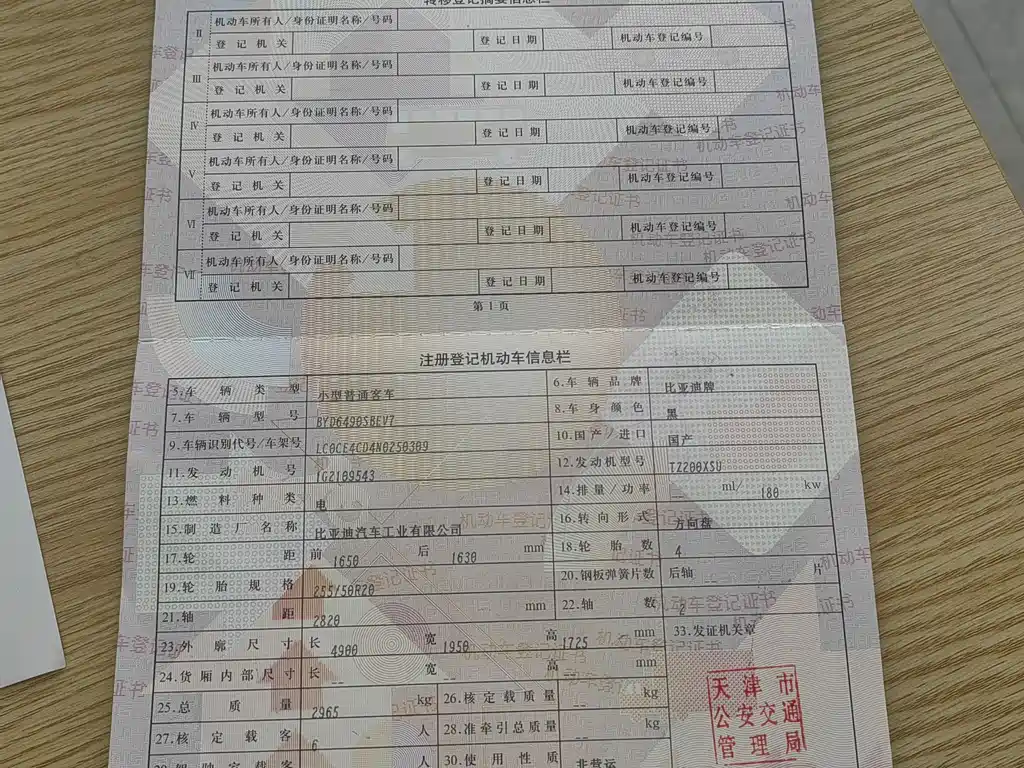 转移登记摘要信息栏
Ⅱ 机动车所有人/身份证明名称/号码
登记机关 登记日期 机动车登记编号
Ⅲ 机动车所有人/身份证明名称/号码
登记机关 登记日期 机动车登记编号
Ⅳ 机动车所有人/身份证明名称/号码
登记机关 登记日期 机动车登记编号
Ⅴ 机动车所有人/身份证明名称/号码
登记机关 登记日期 机动车登记编号
Ⅵ 机动车所有人/身份证明名称/号码
登记机关 登记日期 机动车登记编号
Ⅶ 机动车所有人/身份证明名称/号码
登记机关 登记日期 机动车登记编号
第1页
注册登记机动车信息栏
5.车辆类型 小型普通客车 6.车辆品牌 比亚迪牌
7.车辆型号 BYD6490SBEV7 8.车身颜色 黑
9.车辆识别代号/车架号 LC0CE4CD4N0250309 10.国产/进口 国产
11.发动机号 1G2109543 12.发动机型号 TZ200XSU
13.燃料种类 电 14.排量/功率 -- ml/ 180 kw
15.制造厂名称 比亚迪汽车工业有限公司 16.转向形式 方向盘
17.轮距 前 1650 后 1630 mm 18.轮胎数 4
19.轮胎规格 255/50R20 20.钢板弹簧片数 后轴 -- 片
21.轴距 2820 mm 22.轴数 2
23.外廓尺寸 长 4900 宽 1950 高 1725 mm 33.发证机关章
24.货厢内部尺寸 长 -- 宽 -- 高 -- mm
25.总质量 2965 kg 26.核定载质量 -- kg
27.核定载客 6 人 28.准牵引总质量 -- kg
人 30.使用性质 非营运
天津市
公安交通
管理局